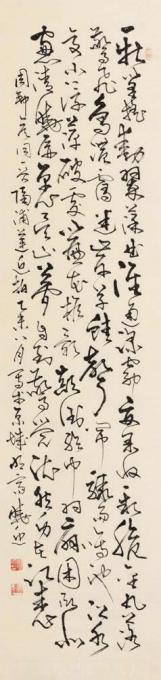 新篁搖動翠葆曲徑通深窈夏果收新脆金丸落
驚飛鳥濃靄迷岸草蛙聲鬧驟雨鳴池沼水
亭小浮萍破處簷花簾影顛倒綸巾羽扇困臥北
窗清曉屏裏吳山夢自到驚覺依然身在江表
周邦彥詞一首隔浦蓮近拍乙未八月寫於京城